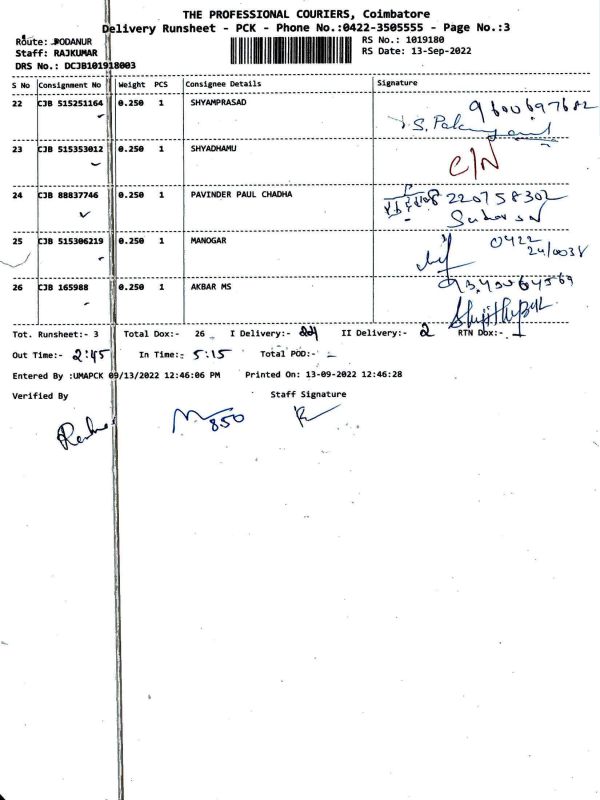 THE PROFESSIONAL COURIERS, Coimbatore
Delivery Runsheet - PCK - Phone No.:0422-3505555 - Page No.:3
Route: PODANUR
RS No.: 1019180
Staff: RAJKUMAR
RS Date: 13-Sep-2022
DRS No.: DCJB101918003
S No Consignment No Weight PCS Consignee Details Signature
22 CJB 515251164 0.250 1 SHYAMPRASAD 9600697682
23 CJB 515353012 0.250 1 SHYADHAMU C/N
24 CJB 88837746 0.250 1 PAVINDER PAUL CHADHA 220758302
25 CJB 515306219 0.250 1 MANOGAR 0422
24/0038
26 CJB 165988 0.250 1 AKBAR MS
Tot. Runsheet:- 3 Total Dox:- 26 I Delivery:- II Delivery:- 2 RTN Dox:-
Out Time:- 2:45 In Time:: 5:15 Total POD:- -
Entered By :UMAPCK 09/13/2022 12:46:06 PM Printed On: 13-09-2022 12:46:28
Verified By Staff Signature
850